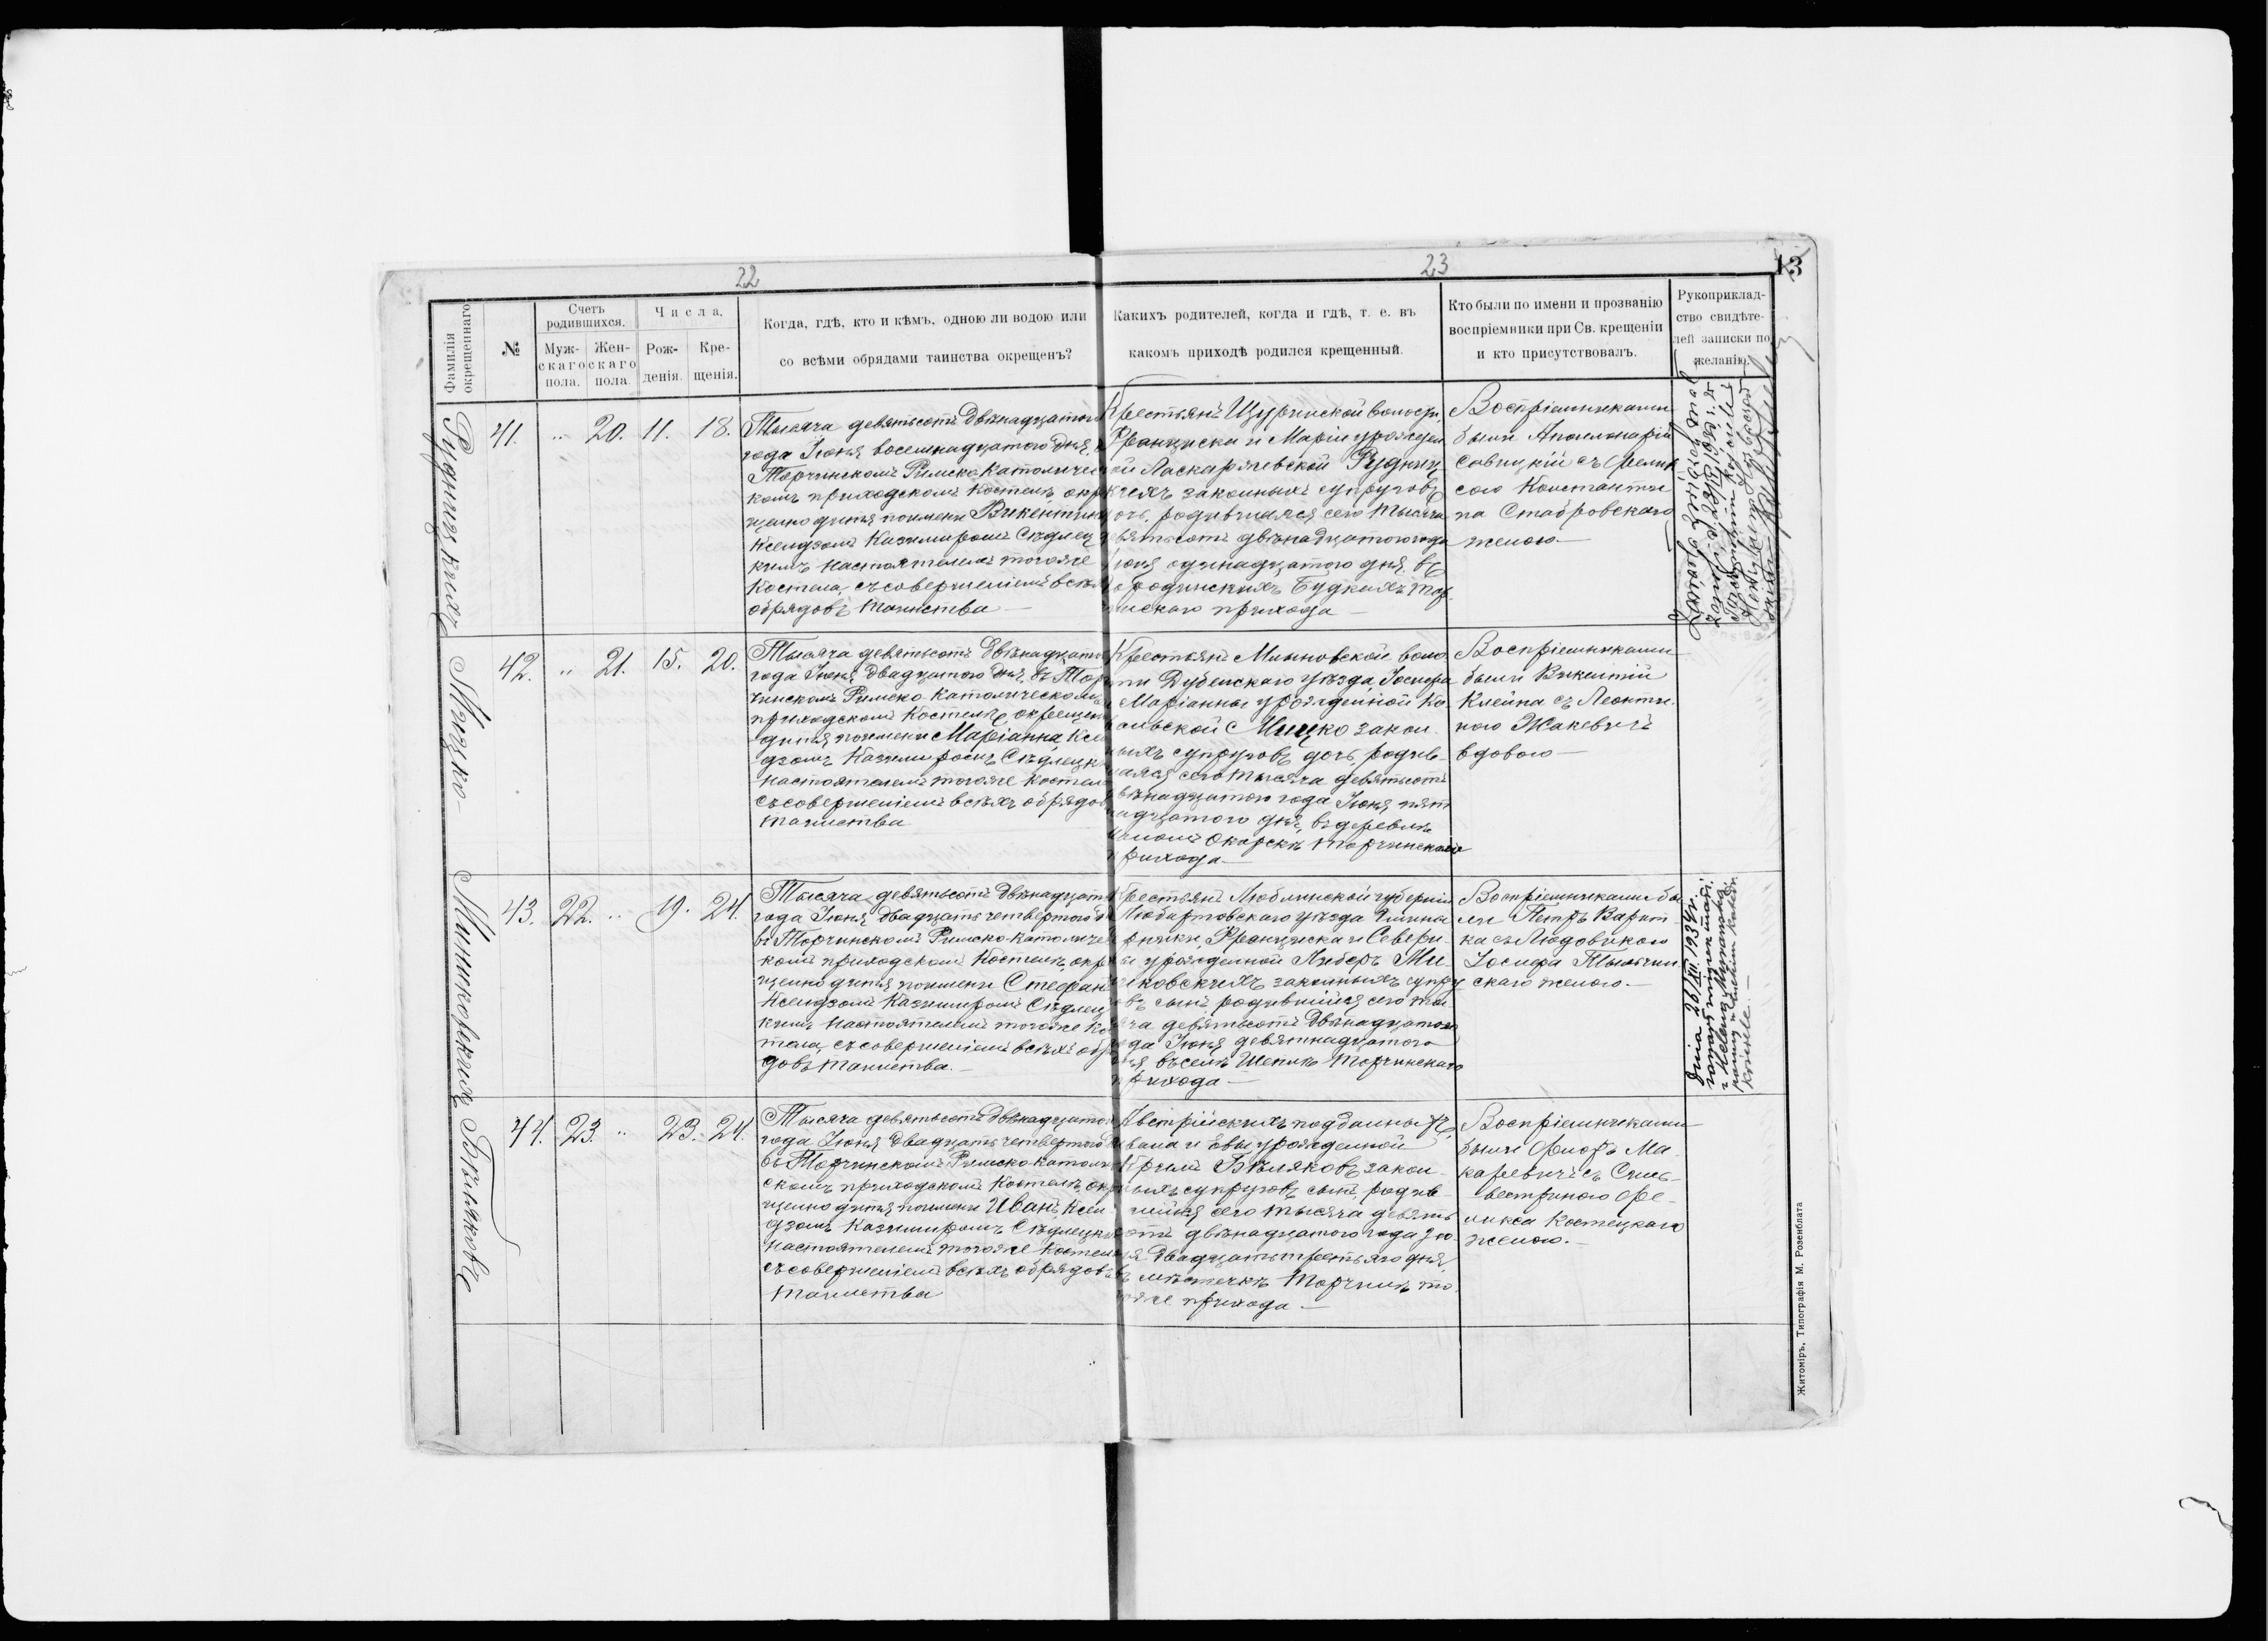 22
23
13
Фамилія окрещеннаго
№
Счетъ родившихся.
Мужскаго пола.
Женскаго пола.
Числа.
Рожденія.
Крещенія.
Когда, гдѣ, кто и кѣмъ, одною ли водою или
со всѣми обрядами таинства окрещенъ?
Каихъ родителей, когда и гдѣ, т. е. въ
какомъ приходѣ родился крещенный.
Кто были по имени и прозванію
воспріемники при Св. крещеніи
и кто присутствовалъ.
Рукоприклад-
ство свидѣте-
лей записки по
желанію.
Рудницкихъ
41. " 20. 11. 18.
Тысяча девятьсотъ двѣнадцатого
года Іюня восемнадцатого дня, в
Торчинскомъ Римско-Католичес
комъ приходскомъ Костелѣ окр
щено дитя поимени Викентина
Ксендзомъ Казимиромъ Сѣдлец
кимъ Настоятелемъ тогоже
Костела, съ совершеніемъ всѣхъ
обрядовъ Таинства —
Крестьянъ Щуринской волости,
Франциска и Маріи урожден
ой Ласкаржевской Рудниц
кихъ законныхъ супруговъ
очь, родившаяся сего тысяча
вятьсотъ двѣнадцатого года
Іюня одинадцатого дня, въ
Будкахъ Тор
инскаго прихода —
Воспріемниками
были Аполлонарій
Савицкій съ Фелик
сою Константи
на Ставровскаго
женою. —
Мицко
42. " 21. 15. 20.
Тысяча девятьсотъ Двѣнадцато
года Іюня двадцатого дня, въ Тор
чинскомъ Римско Католическомъ
приходскомъ Костелѣ окрещен
дитя поимени Маріанна Ксен
дзомъ Казимиромъ Сѣдлецки
Настоятелемъ тогоже Костела
съ совершеніемъ всѣхъ обрядов
Таинства
Крестьянъ Млыновской воло
ти Дубенскаго уѣзда Іосифа
и Маріанны урожденной Ко
альской Мицко закон
ныхъ супруговъ дочь, родив
шаяся сего тысяча девятьсотъ
вѣнадцатого года Іюня пят
надцатого дня, въ деревнѣ
Окорскъ Торчинскаго
прихода —
Воспріемниками
были Викентій
Клейна съ Леонти
ною Жакевичъ
вдовою —
Миньковскихъ
43. 22. " 19. 24.
Тысяча девятьсотъ Двѣнадцат
года Іюня, двадцать четвертого д
въ Торчинскомъ Римско-Католиче
комъ приходскомъ Костелѣ, окр
щено дитя поимени Стефанъ
Ксендзомъ Казимиромъ Сѣдлец
кимъ Настоятелемъ тогоже Ко
тела, съ совершеніемъ всѣхъ обр
довъ Таинства. —
Крестьянъ Люблинской губерніи
Любартовскаго уѣзда Гмины
Франциска и Севери
ы урожденной Либеръ Ми
ьковскихъ законныхъ супру
овъ сынъ родившійся сего ты
яча девятьсотъ Двѣнадцатого
ода Іюня девятнадцатого
дня, въ селѣ Шепель Торчинскаго
прихода —
Воспріемниками бы
ли Петръ
ка съ Людовикою
Іосифа
скаго женою. —
Dnia 26/XII 1934 r.
zawarł związek małż.
z Heleną
Бѣляковъ
44. 23. " 23. 24.
Тысяча девятьсотъ Двѣнадцатог
года Іюня, двадцать четвертого д
въ Торчинскомъ Римско-Католич
скомъ приходскомъ Костелѣ, окр
щено дитя поимени Иванъ, Ксен
дзомъ Казимиромъ Сѣдлецким
Настоятелемъ тогоже Костела
съ совершеніемъ всѣхъ обрядовъ
Таинства
Австрійскихъ подданныхъ,
Ивана и Евы урожденной
Бѣляковъ закон
ныхъ супруговъ сынъ, родив
шійся сего тысяча девять
сотъ двѣнадцатого года Ію
ня двадцать третьяго дня,
въ мѣстечкѣ Торчинѣ то
гоже прихода —
Воспріемниками
были Ма
каревичъ съ Силь
вестриною Фе
ликса Костецкаго
женою. —
Житоміръ, Типографія М. Розенблата